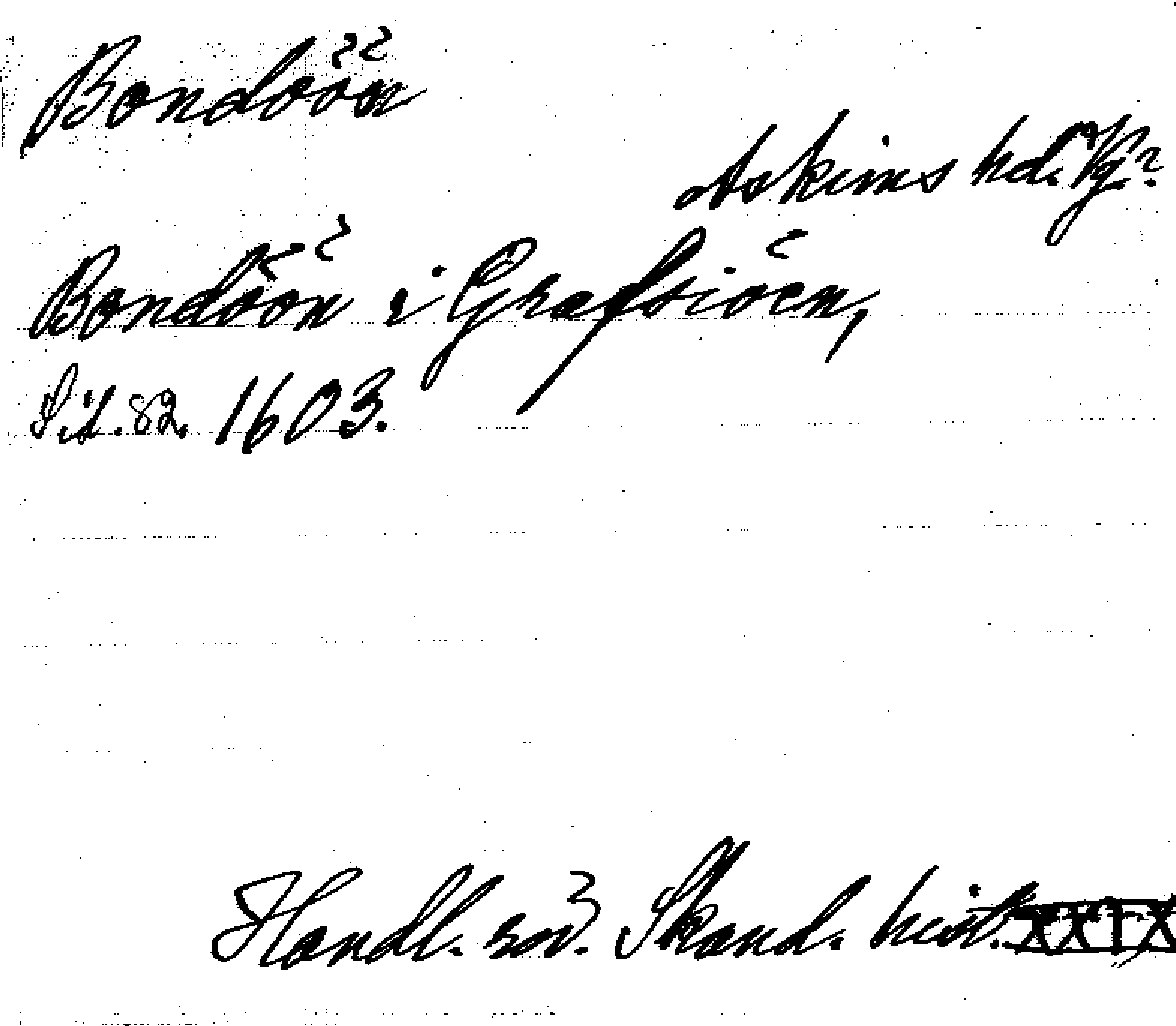 Bondöön
Askims hd. Vg?
Bondöön i Grafsiöen,
Sid. 82. 1603.
Handl. rör. Skand. hist. XXIX